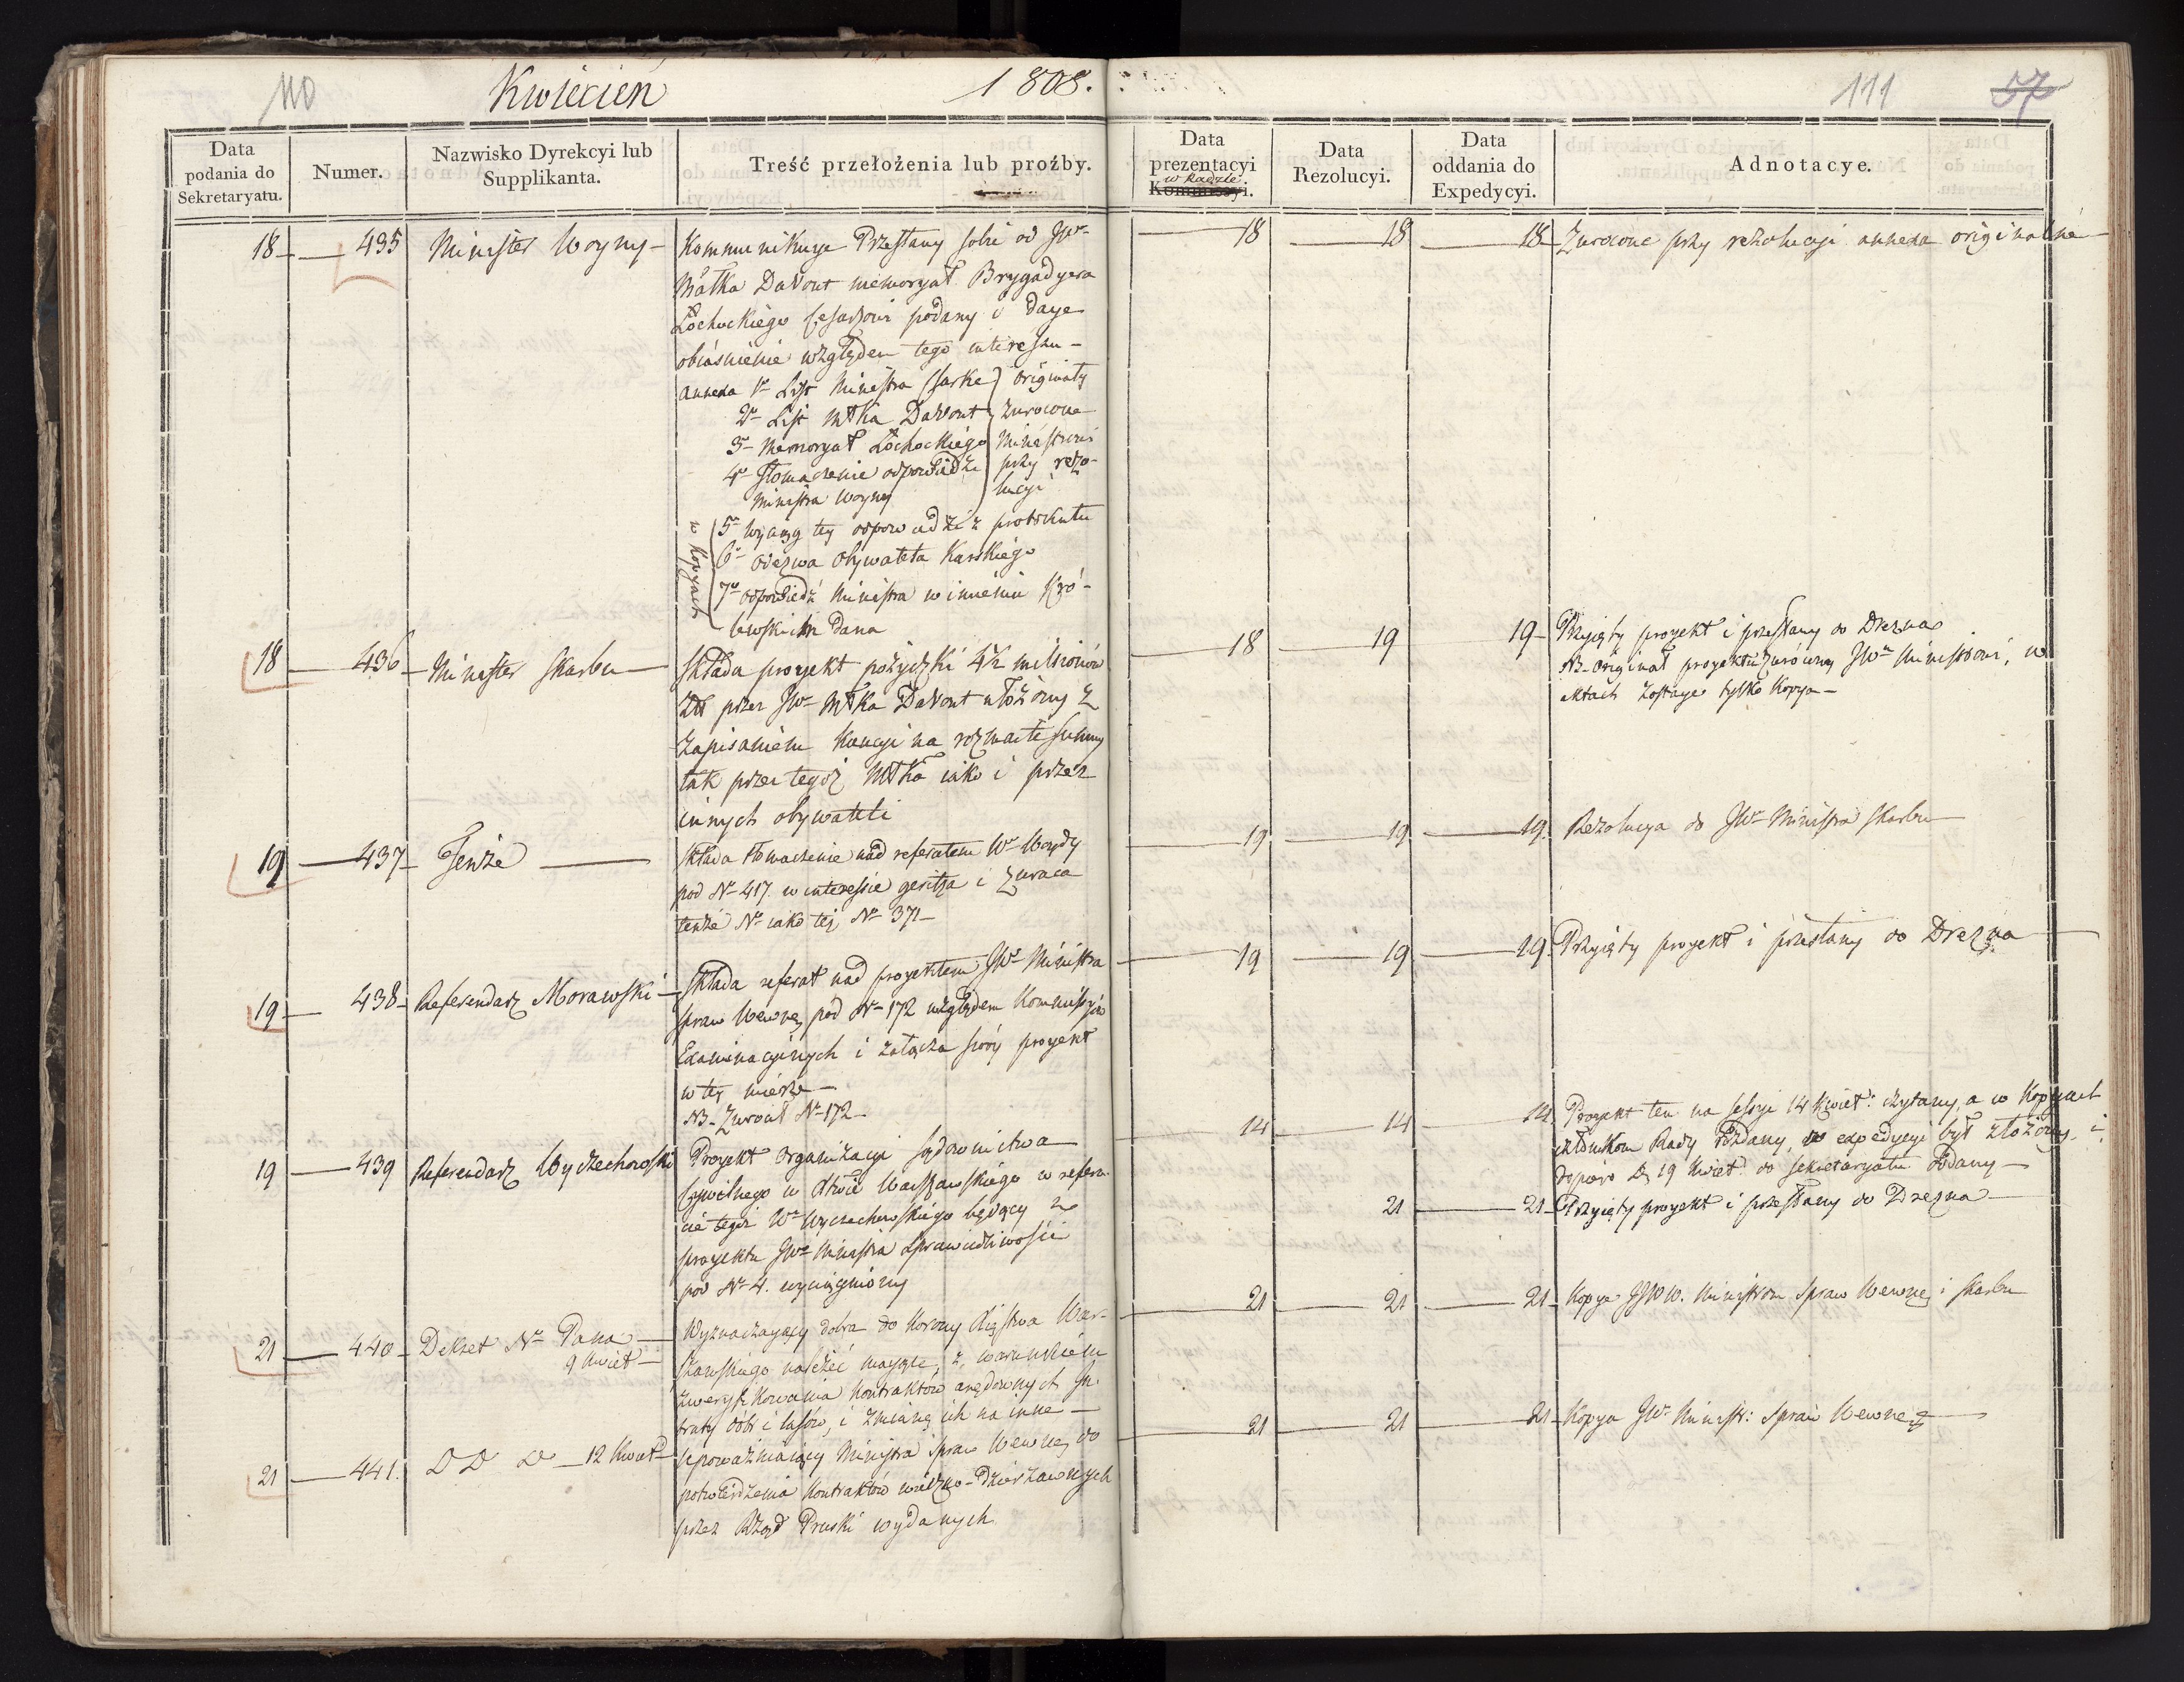 110
Kwiecień 1808.
111 57
Data podania do Sekretaryatu.
Numer.
Nazwisko Dyrekcyi lub Supplikanta.
Treść przełożenia lub proźby.
Data prezentacyi w Radzie Kommissyi.
Data Rezolucyi.
Data oddania do Expedycyi.
Adnotacye.
18 — 435 Minister Woyny —
Kommunikuje Przesłany sobie od JWo
Młka Davout memoryał Brygadyera
Łochockiego Cesarzowi podany i daye
obiaśnienie względem tego interessu —
annexa 1o List Ministra Clarke
2o List Młka Davout
3o Memoryał Łochockiego
4o Tłomaczenie odpowiedzi
Ministra Woyny
originały
zwrocone
Ministrowi
przy rezo-
lucyi
w kopyach
5o Wyciąg tey odpowiedzi z protokułu
6o odezwa Obywatela Karskiego
7o odpowiedź Ministra w imieniu Kró-
lewskim dana
18 — 18 — 18 — Zwrocone przy rezolucyi annexa originalne —
18 — 436 — Minister Skarbu —
Składa proyekt pożyczki 4½ milionów
Złł przez JWo Młka Davout ułożony z
zapisaniem kaucyi na rozmaite summy
tak przez tegoż Młka iako i przez
innych obywateli
18 19 19 — Przyięty proyekt i przesłany do Drezna
NB. Originał proyektu zwrócony JWu Ministrowi, w
aktach zostaye tylko kopya —
19 — 437 — Tenże —
Składa tłomaczenie nad referatem Wo Woydy
pod No 417. w interessie
i zwraca
tenże No iako też No 371 —
19 — 19 — 19. Rezolucya do JWo Ministra Skarbu —
19 — 438 — Referendarz Morawski —
Składa referat nad proyektem JWo Ministra
spraw Wewnę. pod No 172 względem Kommissyów
Examinacyinych i załącza swóy proyekt
w tey mierze —
NB. Zwrocił No 172 —
19 — 19 — 19. Przyięty proyekt i przesłany do Drezna —
19 — 439 Referendarz Wyczechowski
Proyekt organizacyi sądownictwa
Cywilnego w Xtwie Warszawskiego w refera-
cie tegoż Wo Wyczechowskiego będący z
proyektu JWo Ministra Sprawiedliwości
pod No 4. wyciągniony
14 — 14 — 14. Proyekt ten na sessyi 14 Kwiet: czytany, a w Kopyach
członkom Rady rozdany, do expedycyi był złożony i
dopiéro D. 19 Kwiet: do Sekretaryatu oddany —
21 — 21 — Przyięty proyekt i przesłany do Drezna —
21 — 440 — Dekret No Pana —
9 Kwiet —
Wyznaczaiący dobra do Korony Xięstwa War-
szawskiego należeć maiące, z warunkiem
zweryfikowania kontraktów arędownych
traty dóbr i lasów, i zmianę ich na inne —
21 — 21 — 21 — Kopya JJWW. Ministrom Spraw Wewnę. i Skarbu
21 — 441. D D D — 12 Kwiet —
Upoważniaiący Ministra Spraw Wewnę. do
potwierdzenia kontraktów wieczno-dzierżawnych
przez Rząd Pruski wydanych
21 — 21 — 21 — Kopya JWo Ministr: Spraw Wewnę. —